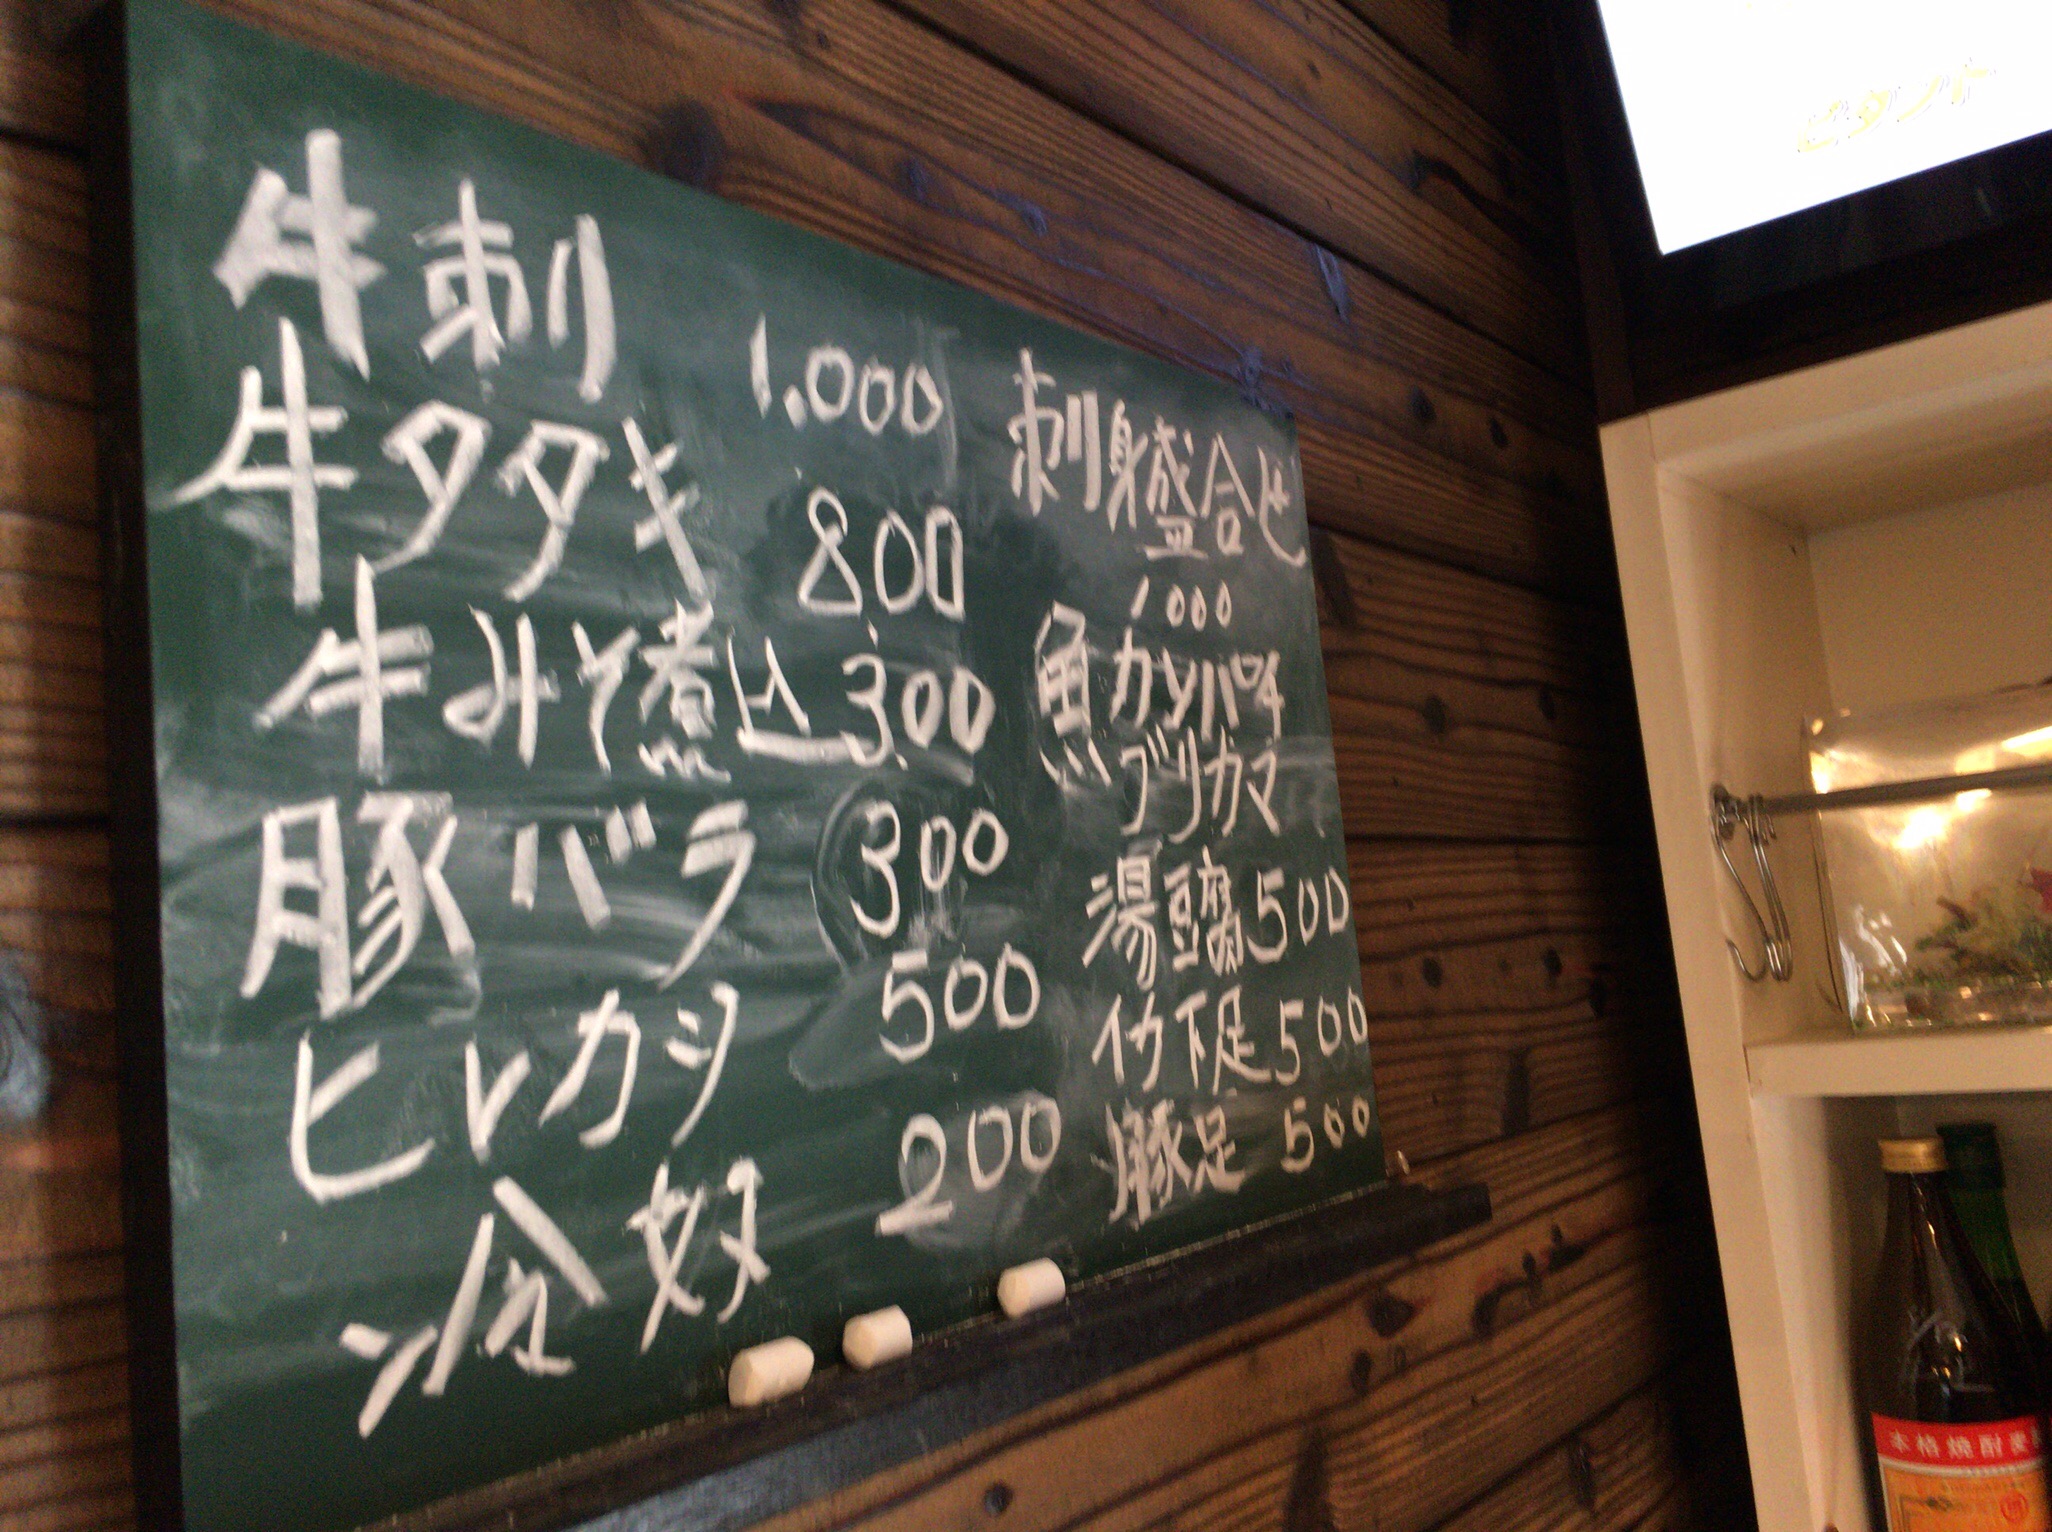 牛刺 1.000
牛タタキ 800
牛みそ煮込 300
豚バラ 300
ヒレカツ 500
冷奴 200
刺身盛合せ
1000
魚カンパチ
ブリカマ
湯豆腐 500
イカ下足 500
豚足 500
ピタント
本格焼酎麦